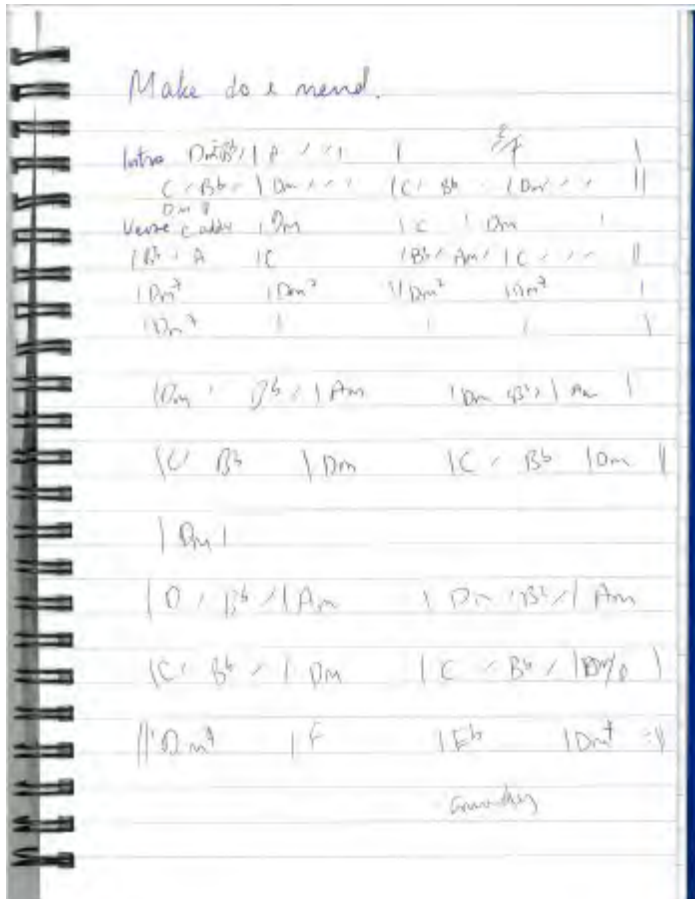 Make do & mend.
Intro Dm Bb / | A / / / | | |
C / Bb / | Dm / / / | C / Bb / | Dm / / / ||
Dm
Verse C | Dm | C | Dm |
| Bb / A | C | Bb / Am / | C / / / ||
| Dm7 | Dm7 || Dm7 | Dm7 |
| Dm7 | | | |
| Dm / Bb / | Am | Dm / Bb / | Am |
| C / Bb | Dm | C / Bb | Dm ||
| Dm |
| D / Bb / | Am | Dm / Bb / | Am
| C / Bb / | Dm | C / Bb / | |
||: Dm7 | F | Eb | Dm7 :||